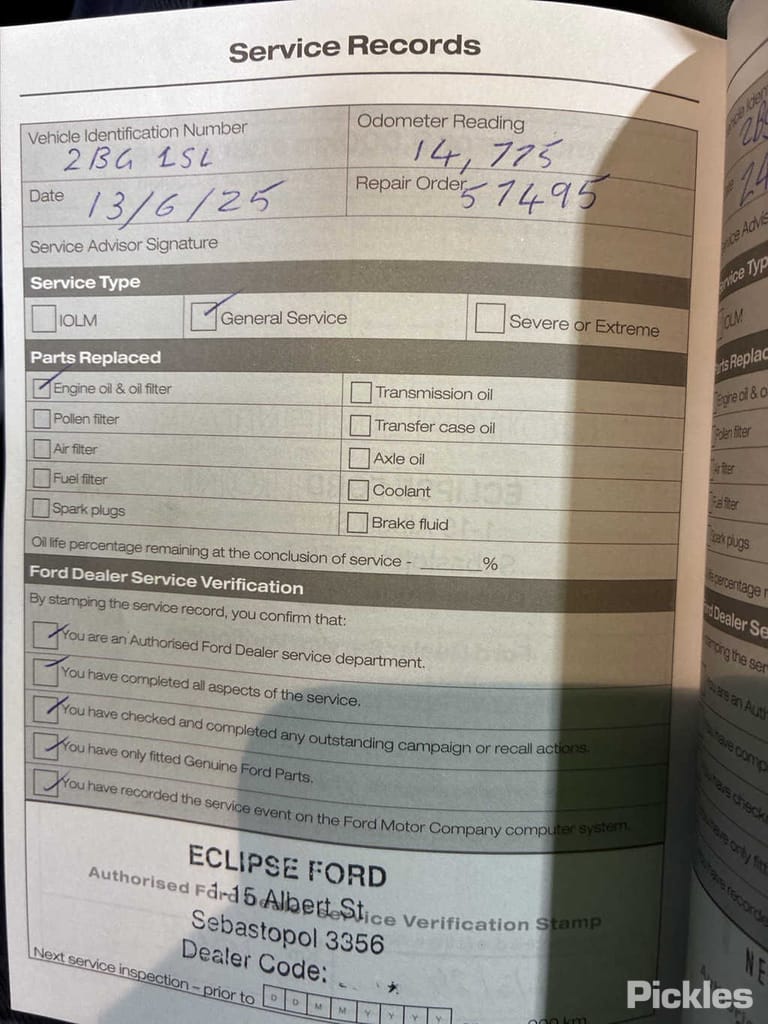 Service Records
Vehicle Identification Number
2BG 1SL
Odometer Reading
14,775
Date 13/6/25
Repair Order 57495
Service Advisor Signature
Service Type
IOLM
General Service
Severe or Extreme
Parts Replaced
Engine oil & oil filter
Transmission oil
Pollen filter
Transfer case oil
Air filter
Axle oil
Fuel filter
Coolant
Spark plugs
Brake fluid
Oil life percentage remaining at the conclusion of service - ______%
Ford Dealer Service Verification
By stamping the service record, you confirm that:
You are an Authorised Ford Dealer service department.
You have completed all aspects of the service.
You have checked and completed any outstanding campaign or recall actions.
You have only fitted Genuine Ford Parts.
You have recorded the service event on the Ford Motor Company computer system.
ECLIPSE FORD
Authorised Ford Dealer Service Verification Stamp
1-15 Albert St
Sebastopol 3356
Dealer Code:
Next service inspection – prior to D D M M Y Y Y Y
000 km
Pickles